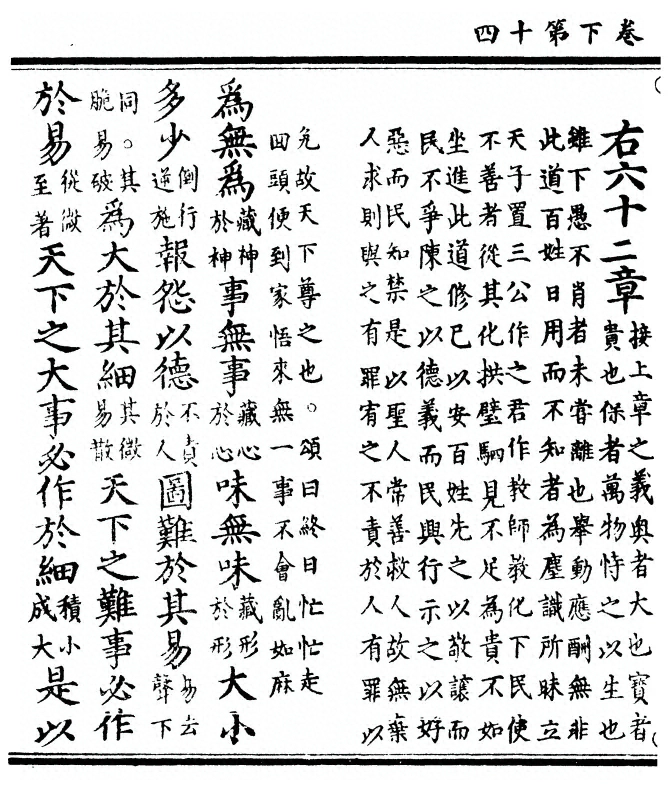 卷下第十四
右六十二章接上章之義奥者大也寳者
貴也保者萬物恃之以生也
雖下愚不肖者未嘗離也舉動應酬無非
此道百姓日用而不知者為塵識所昧立
天子置三公作之君作敎師敎化下民使
不善者從其化拱璧駟見不足為貴不如
坐進此道修巳以安百姓先之以敬讓而
民不爭陳之以德義而民興行示之以好
惡而民知禁是以聖人常善救人故無棄
人求則與之有罪宥之不責於人有罪以
免故天下尊之也。頌曰終日忙忙走
回頭便到家悟來無一事不會亂如麻
爲無爲藏神於神事無事藏心於心味無味藏形於形大小
多少倒行逆施報怨以德不責於人圖難於其易易去聲下
同。其脆易破為大於其細其微易散天下之難事必作
於易從微至著天下之大事必作於細積小成大是以